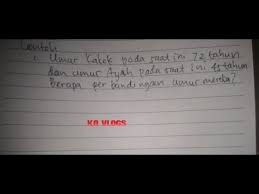 Contoh
1. Umur Kakek pada saat ini 72 tahun
dan umur Ayah pada saat ini 45 tahun
Berapa perbandingan umur mereka?
KO VLOGS